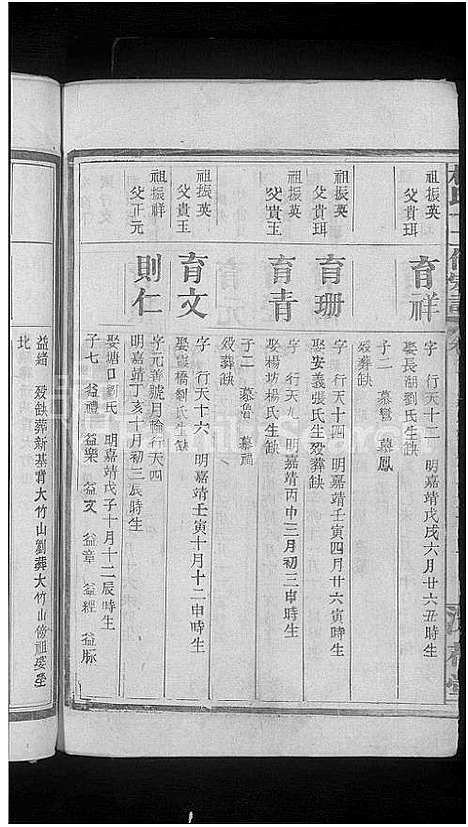 祖振英
父貴珥
育祥
字 行天十二 明嘉靖戊戌六月廿六丑時生
娶長湖劉氏生缺
子二 慕鸞 慕鳳
祖振英
父貴珥
育珊
字 行天十四 明嘉靖壬寅四月廿六寅時生
娶安義張氏生殁葬缺
祖振英
父貴玉
育青
字 行天九 明嘉靖丙申三月初三申時生
娶楊坊楊氏生缺
子二 慕魯 慕
殁葬缺
祖振英
父貴玉
育文
字 行天十六 明嘉靖壬寅十月十二申時生
娶橋劉氏生缺
殁葬缺
祖振祥
父正元
則仁
字元善號月輪行天四
明嘉靖丁亥十月初三辰時生
娶塘口劉氏 明嘉靖戊子十月十二辰時生
子七 益禮 益樂 益文 益章 益經 益脉
益緒 殁缺葬新基背大竹山劉葬大竹山傍祖婆坐
北